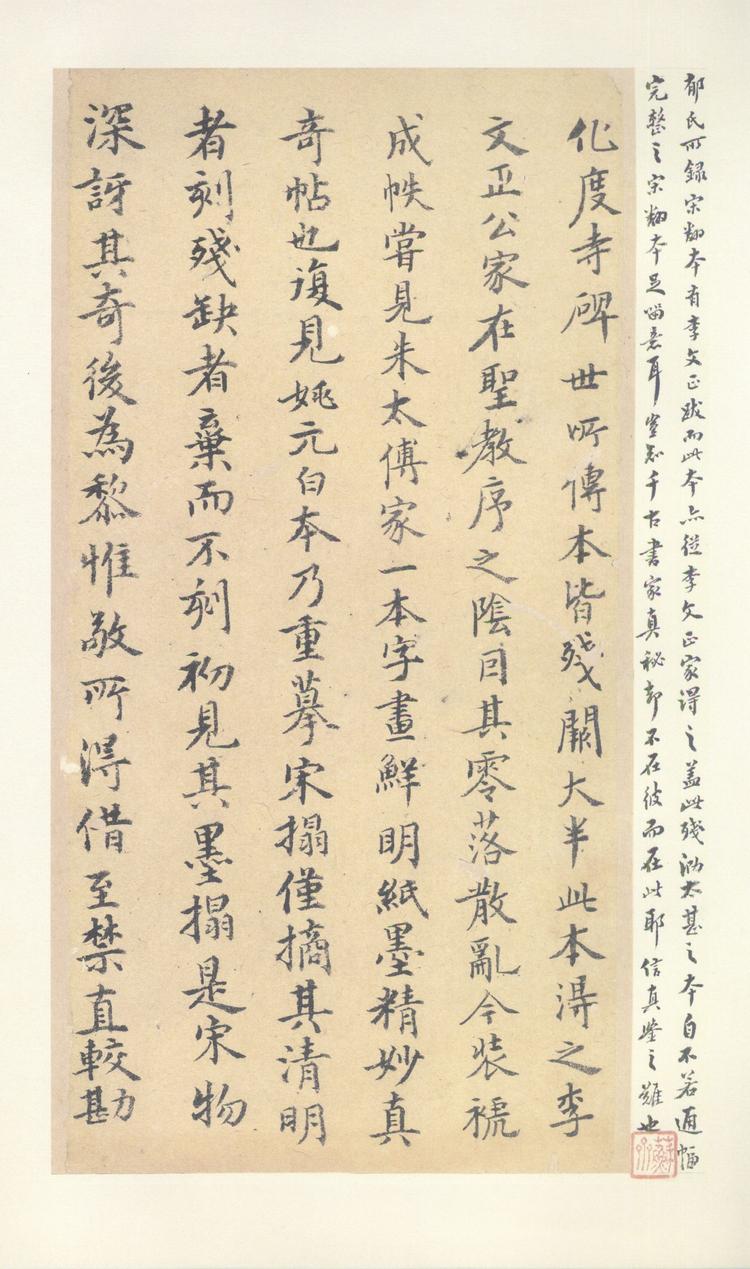 郁氏所録宋翻本有李文正跋而此本亦從李文正家得之蓋此殘泐太甚之本自不若通幅
完整之宋翻本足留意耳豈知千古書家真秘却不在彼而在此耶信真鑒之難也
化度寺碑世所傳本皆殘闕大半此本得之李
文正公家在聖教序之陰因其零落散亂今裝褫
成帙嘗見朱太傅家一本字畫鮮明紙墨精妙真
奇帖也復見姚元白本乃重摹宋搨僅摘其清明
者刻殘缺者棄而不刻初見其墨搨是宋物
深訝其奇後為黎惟敬所得借至禁直較勘